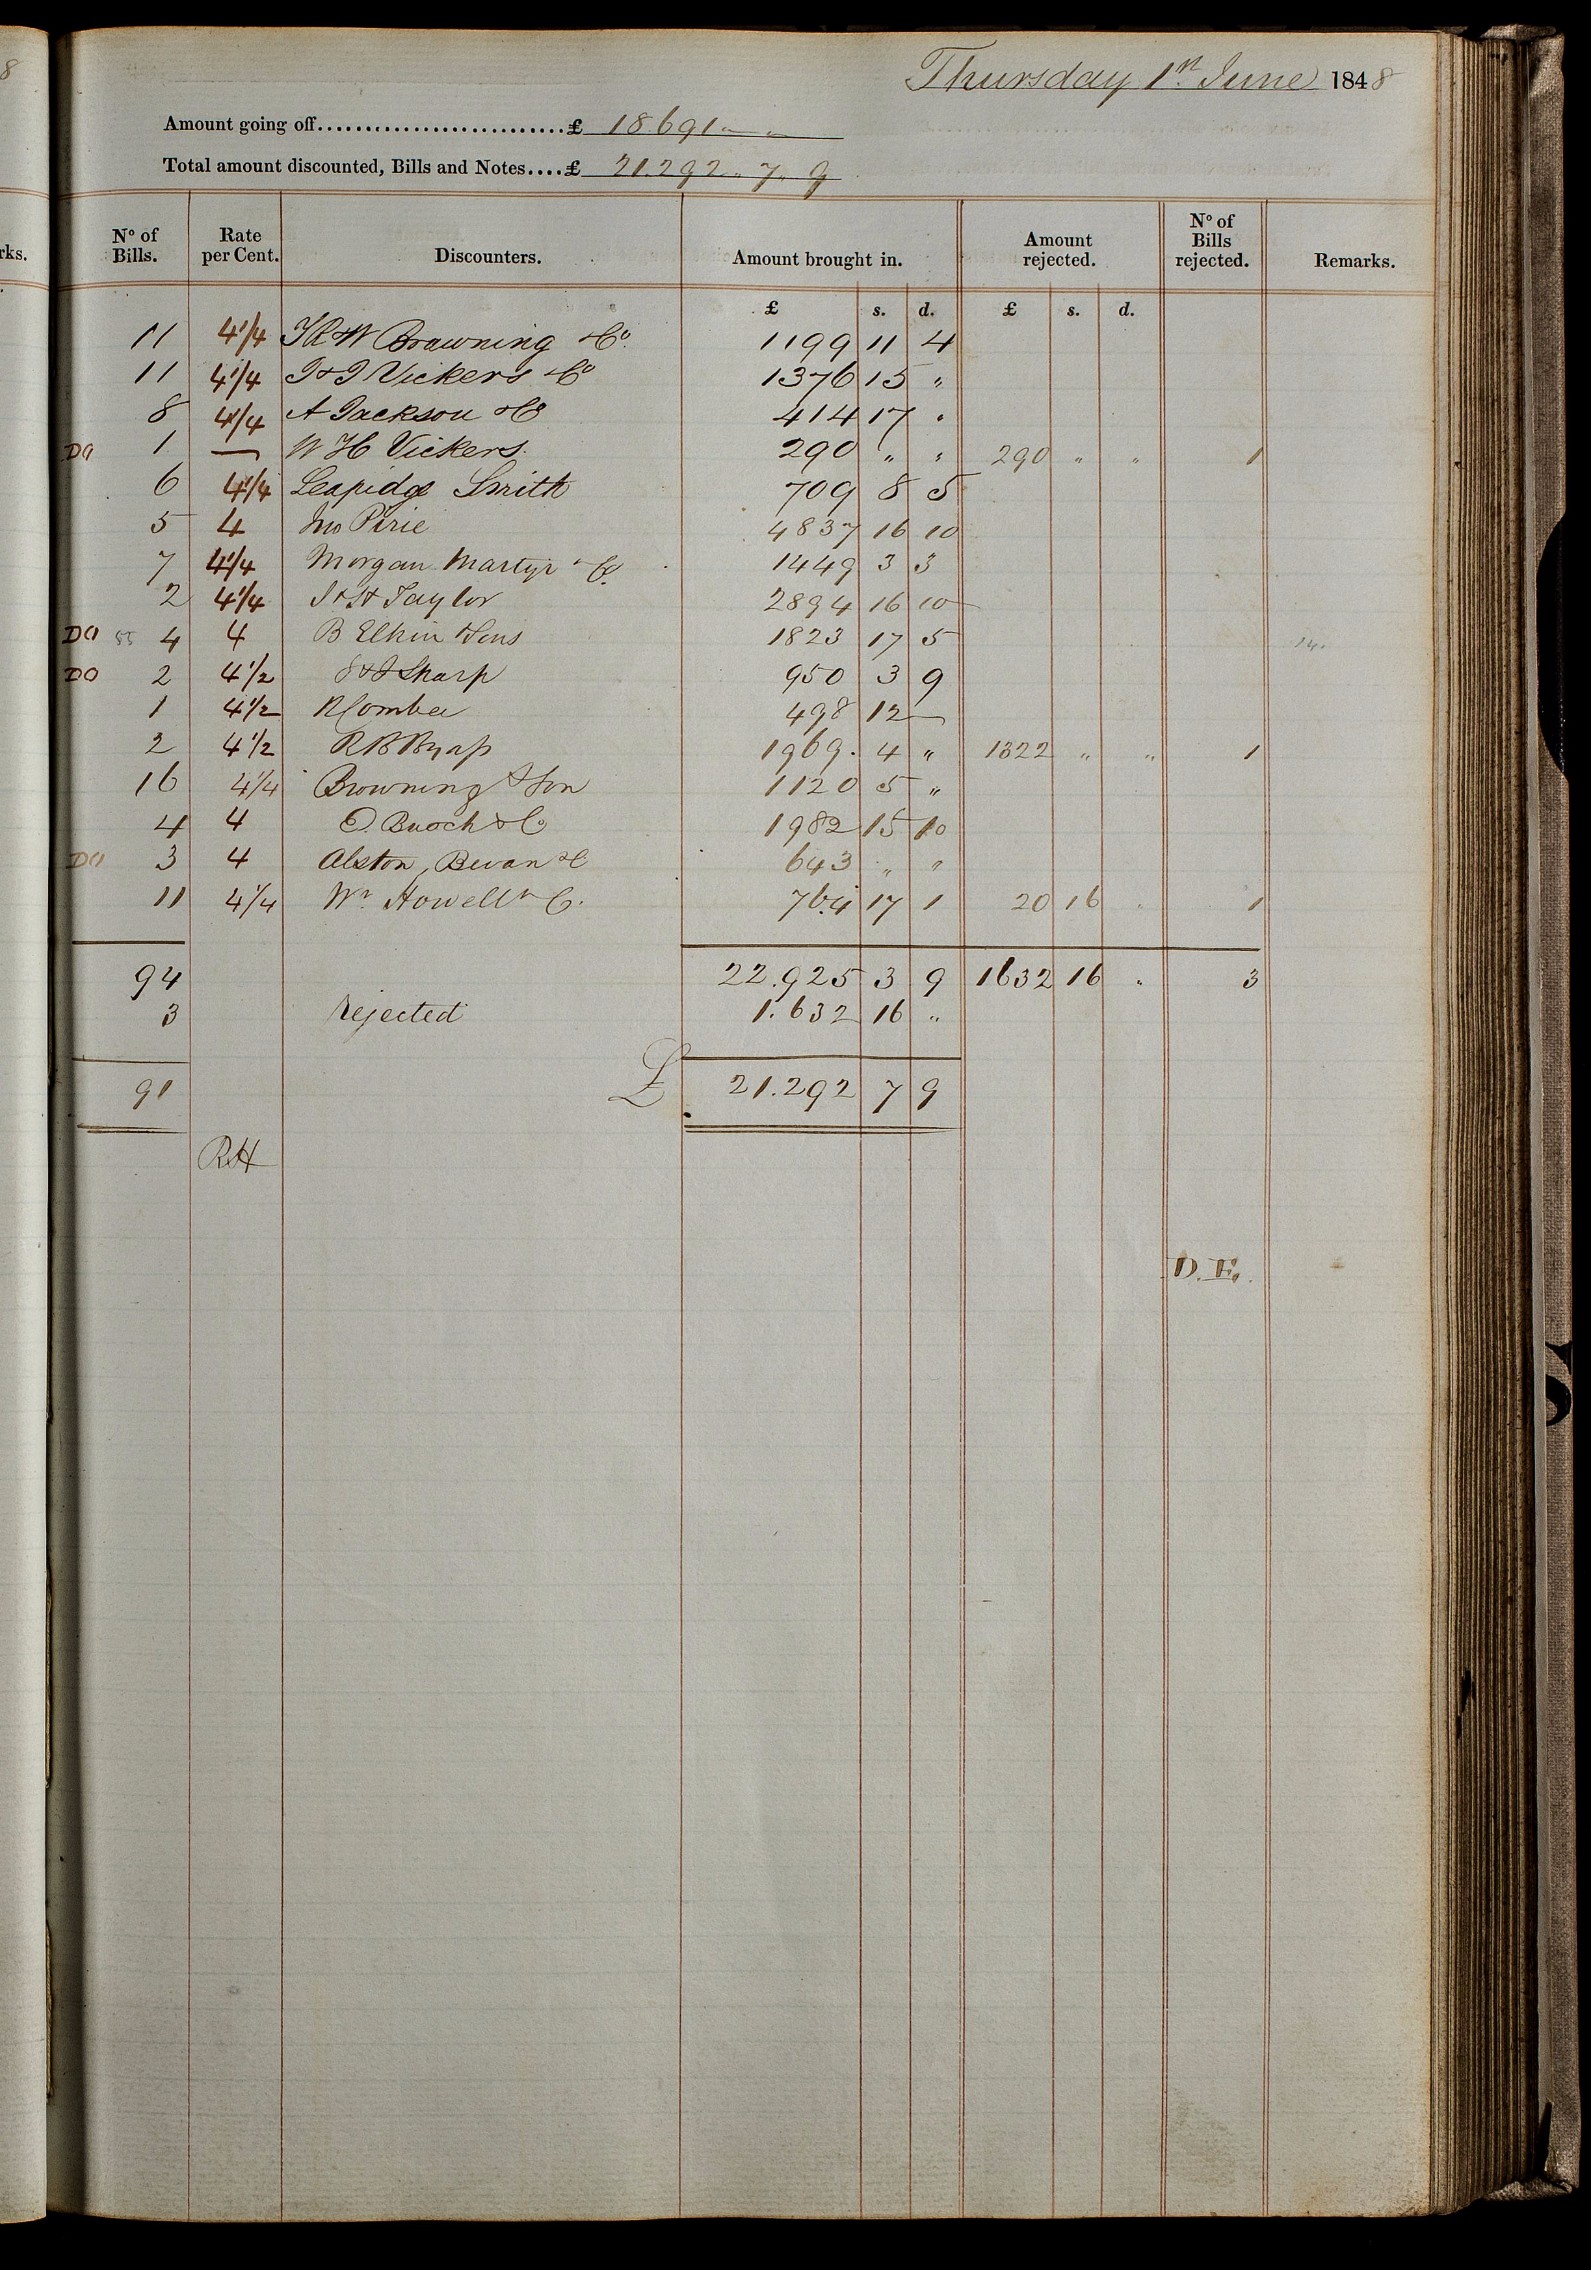 8
Thursday 1st June 1848
Amount going off...........................£ 18.691 " "
Total amount discounted, Bills and Notes....£ 21.292 " 7 " 9
rks.
No of Bills. Rate per Cent. Discounters. Amount brought in. Amount rejected. No of Bills rejected. Remarks.
£ s. d. £ s. d.
11 4 1/4 & W Browning & Co. 1199 11 4
11 4 1/4 J & J Vickers & Co 1376 15 "
8 4 1/4 A Jackson & Co 414 17 "
DO 1 — W H Vickers. 290 " " 290 " " 1
6 4 1/4 Leapidge Smith 709 8 5
5 4 Jno Pirie 4837 16 10
7 4 1/4 Morgan Martyr & Co. 1449 3 3
2 4 1/4 Taylor 2894 16 10
DO 55 4 4 B Elkin & Sons 1823 17 5 14.
DO 2 4 1/2 & J Sharp 950 3 9
1 4 1/2 498 12 —
2 4 1/2 R B 1969. 4 " 1322 " " 1
16 4 1/4 Browning & Son 1120 5 "
4 4 & Co 1982 15 10
DO 3 4 Alston, Bevan & C 643 " "
11 4 1/4 Wm Howell & Co. 764 17 1 20 16 " 1
94 22.925 3 9 1632 16 " 3
3 Rejected 1.632 16 "
91 £ 21.292 7 9
RH
D.E.